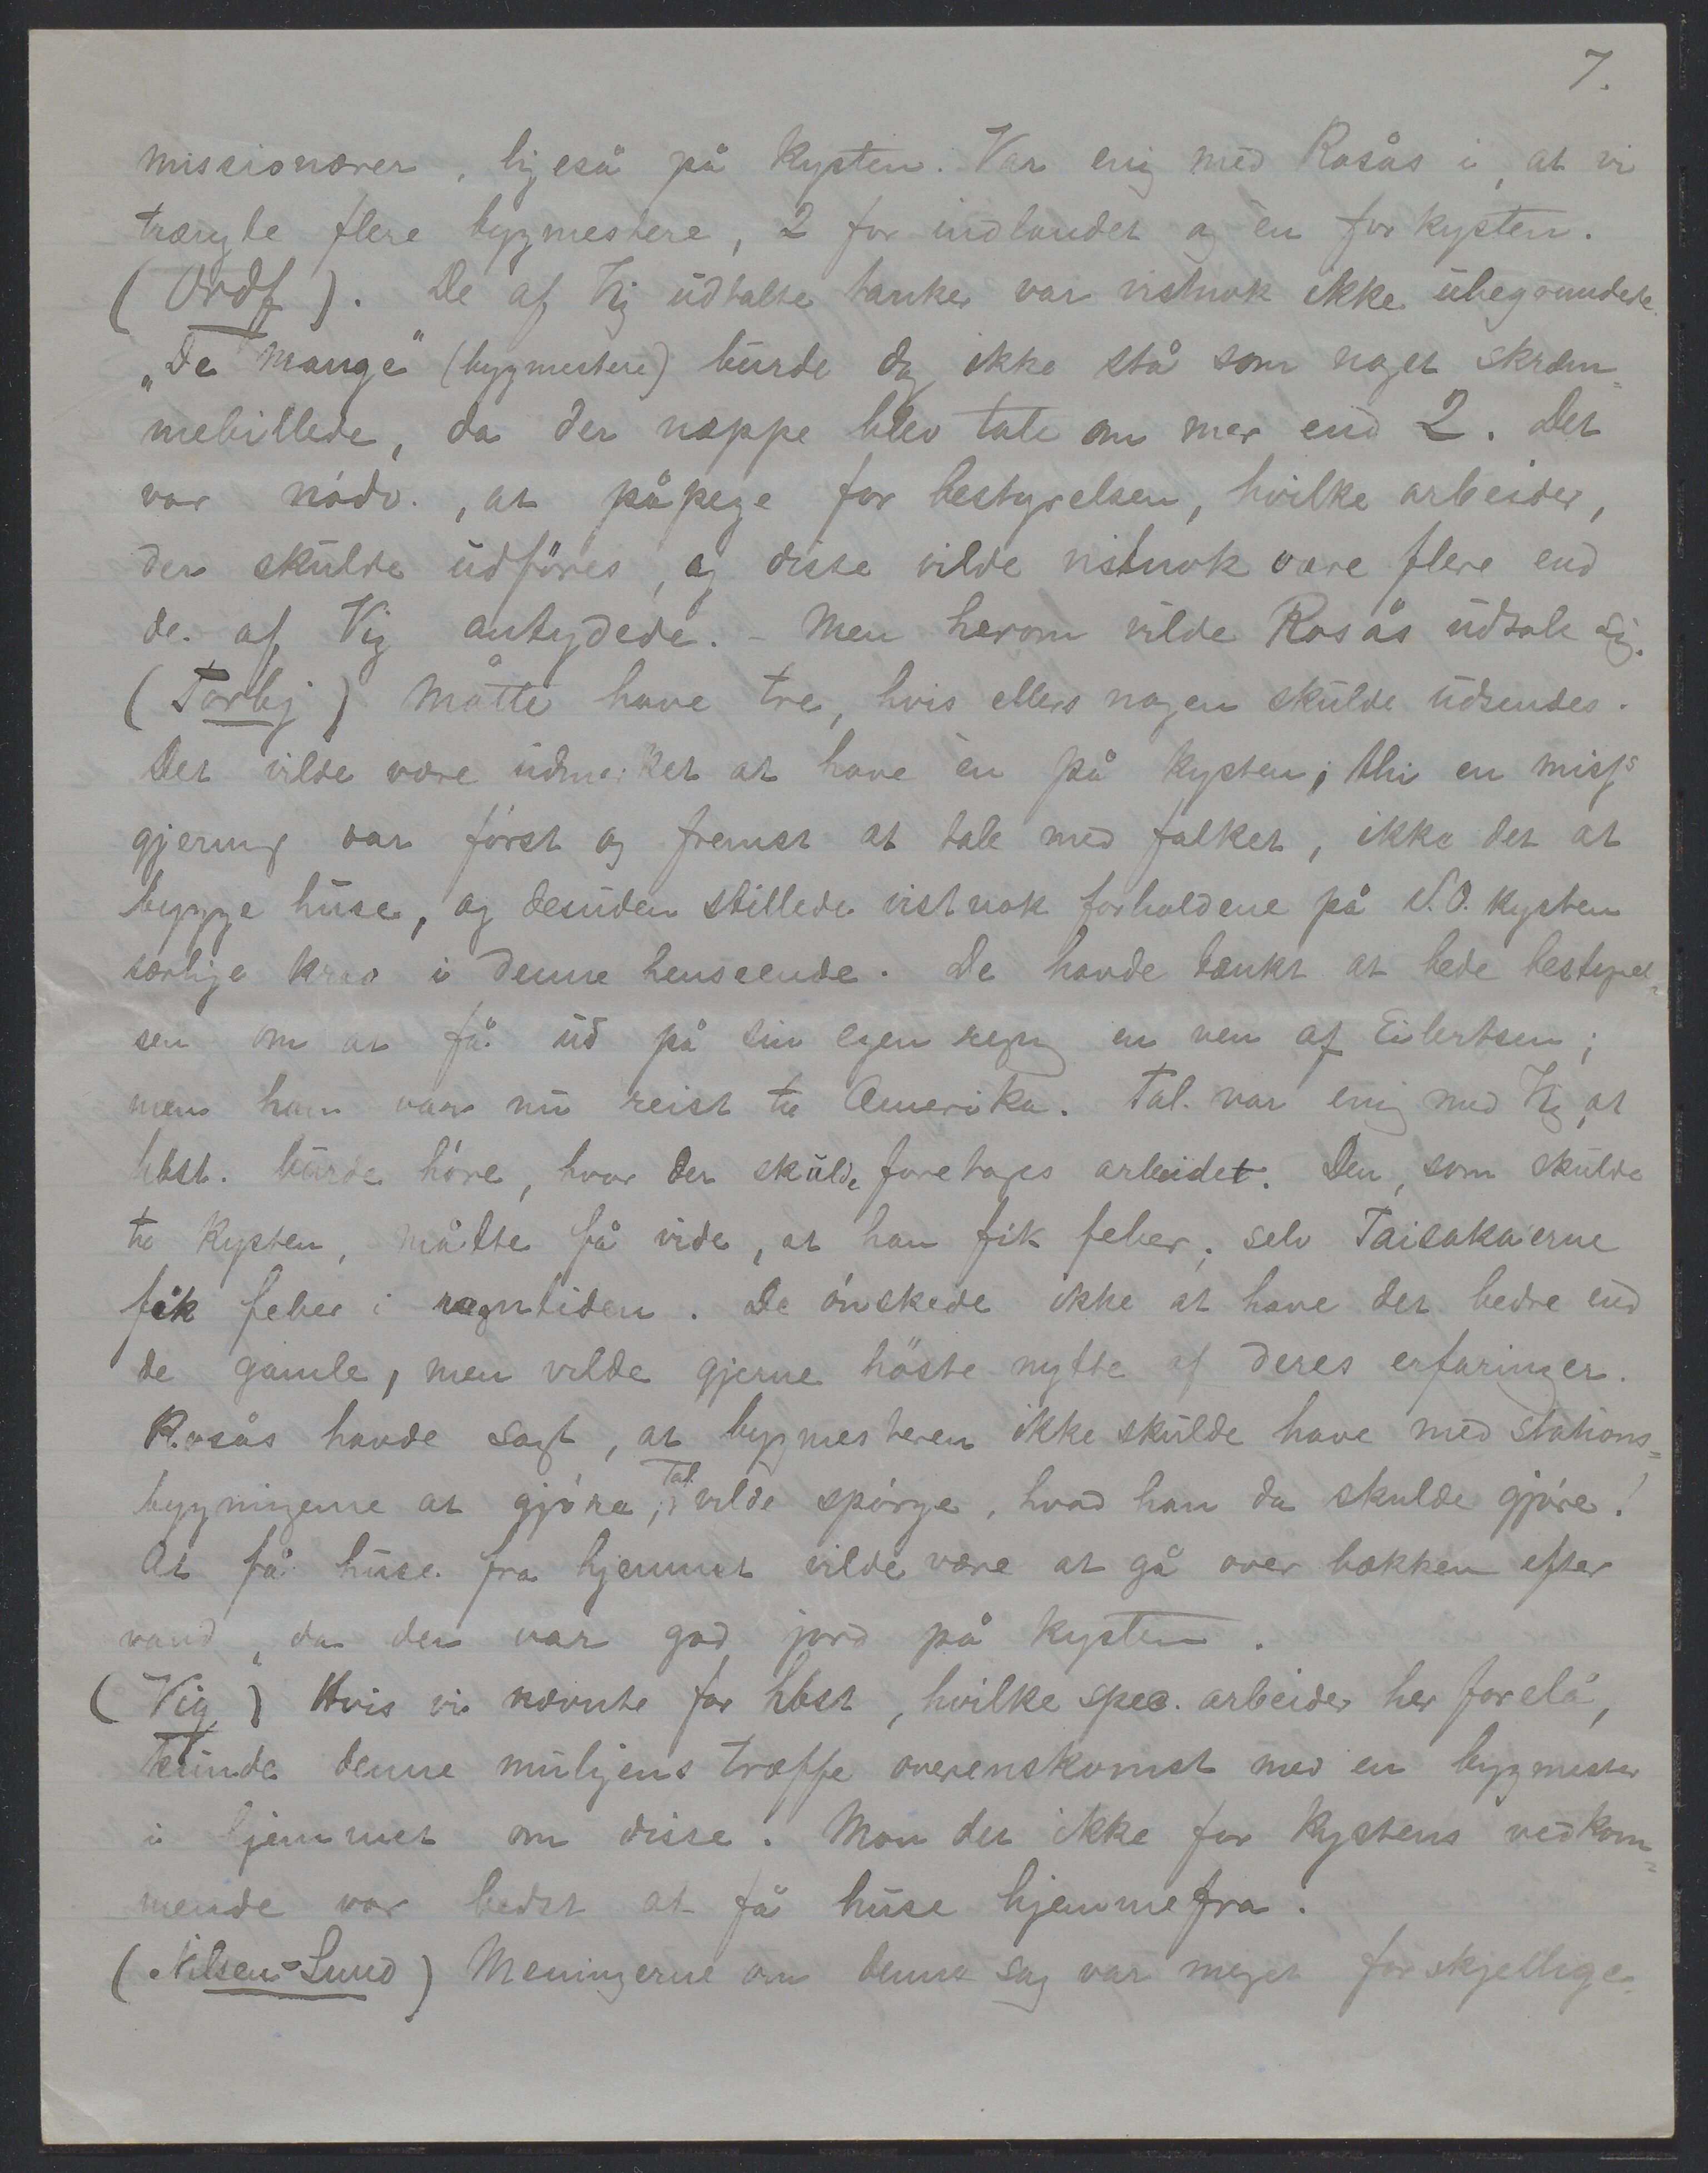 7.
missionærer, ligeså på kysten. Var enig med Rosås i, at vi
trængte flere bygmestere, 2 for indlandet og èn for kysten.
(Ordf). De af Vig udtalte tanker var vistnok ikke ubegrundede.
„De mange" (bygmestere) burde dog ikke stå som noget skræm=
mebillede, da der næppe blev tale om mer end 2. Det
var nödv., at påpege for bestyrelsen, hvilke arbeider,
der skulde udföres, og disse vilde vistnok være flere end
de af Vig antydede. - Men herom vilde Rosås udtale sig.
(Torbj) Måtte have tre, hvis ellers nogen skulde udsendes.
Det vilde være udmerket at have èn på kysten; thi en miss's
gjerning var först og fremst at tale med folket, ikke det at
bygge huse, og desuden stillede vistnok forholdene på S.O. kysten
særlige krav i denne henseende. De havde tænkt at bede bestyrel=
sen om at få ud på sin egen regng en ven af Eilertsen;
men han var nu reist til Amerika. Tal. var enig med Vig, at
hbst. burde höre, hvor der skulde foretages arbeidet. Den, som skulde
til kysten, måtte få vide, at han fik feber; selv Taisakaerne
fik feber i regntiden. De önskede ikke at have det bedre end
de gamle, men vilde gjerne höste nytte af deres erfaringer.
Rosås havde sagt, at bygmesteren ikke skulde have med stations=
bygningerne at gjöre; Tal. vilde spörge, hvad han da skulde gjöre!
At få huse fra hjemmet vilde være at gå over bækken efter
vand, da der var god jord på kysten.
(Vig) Hvis vi nævnte for hbst, hvilke spec. arbeider her forelå,
kunde denne muligens træffe overenskomst med en bygmester
i hjemmet om disse. Mon det ikke for kystens vedkom=
mende var bedst at få huse hjemmefra.
(Nilsen-Lund) Meningerne om denne sag var meget forskjellige.